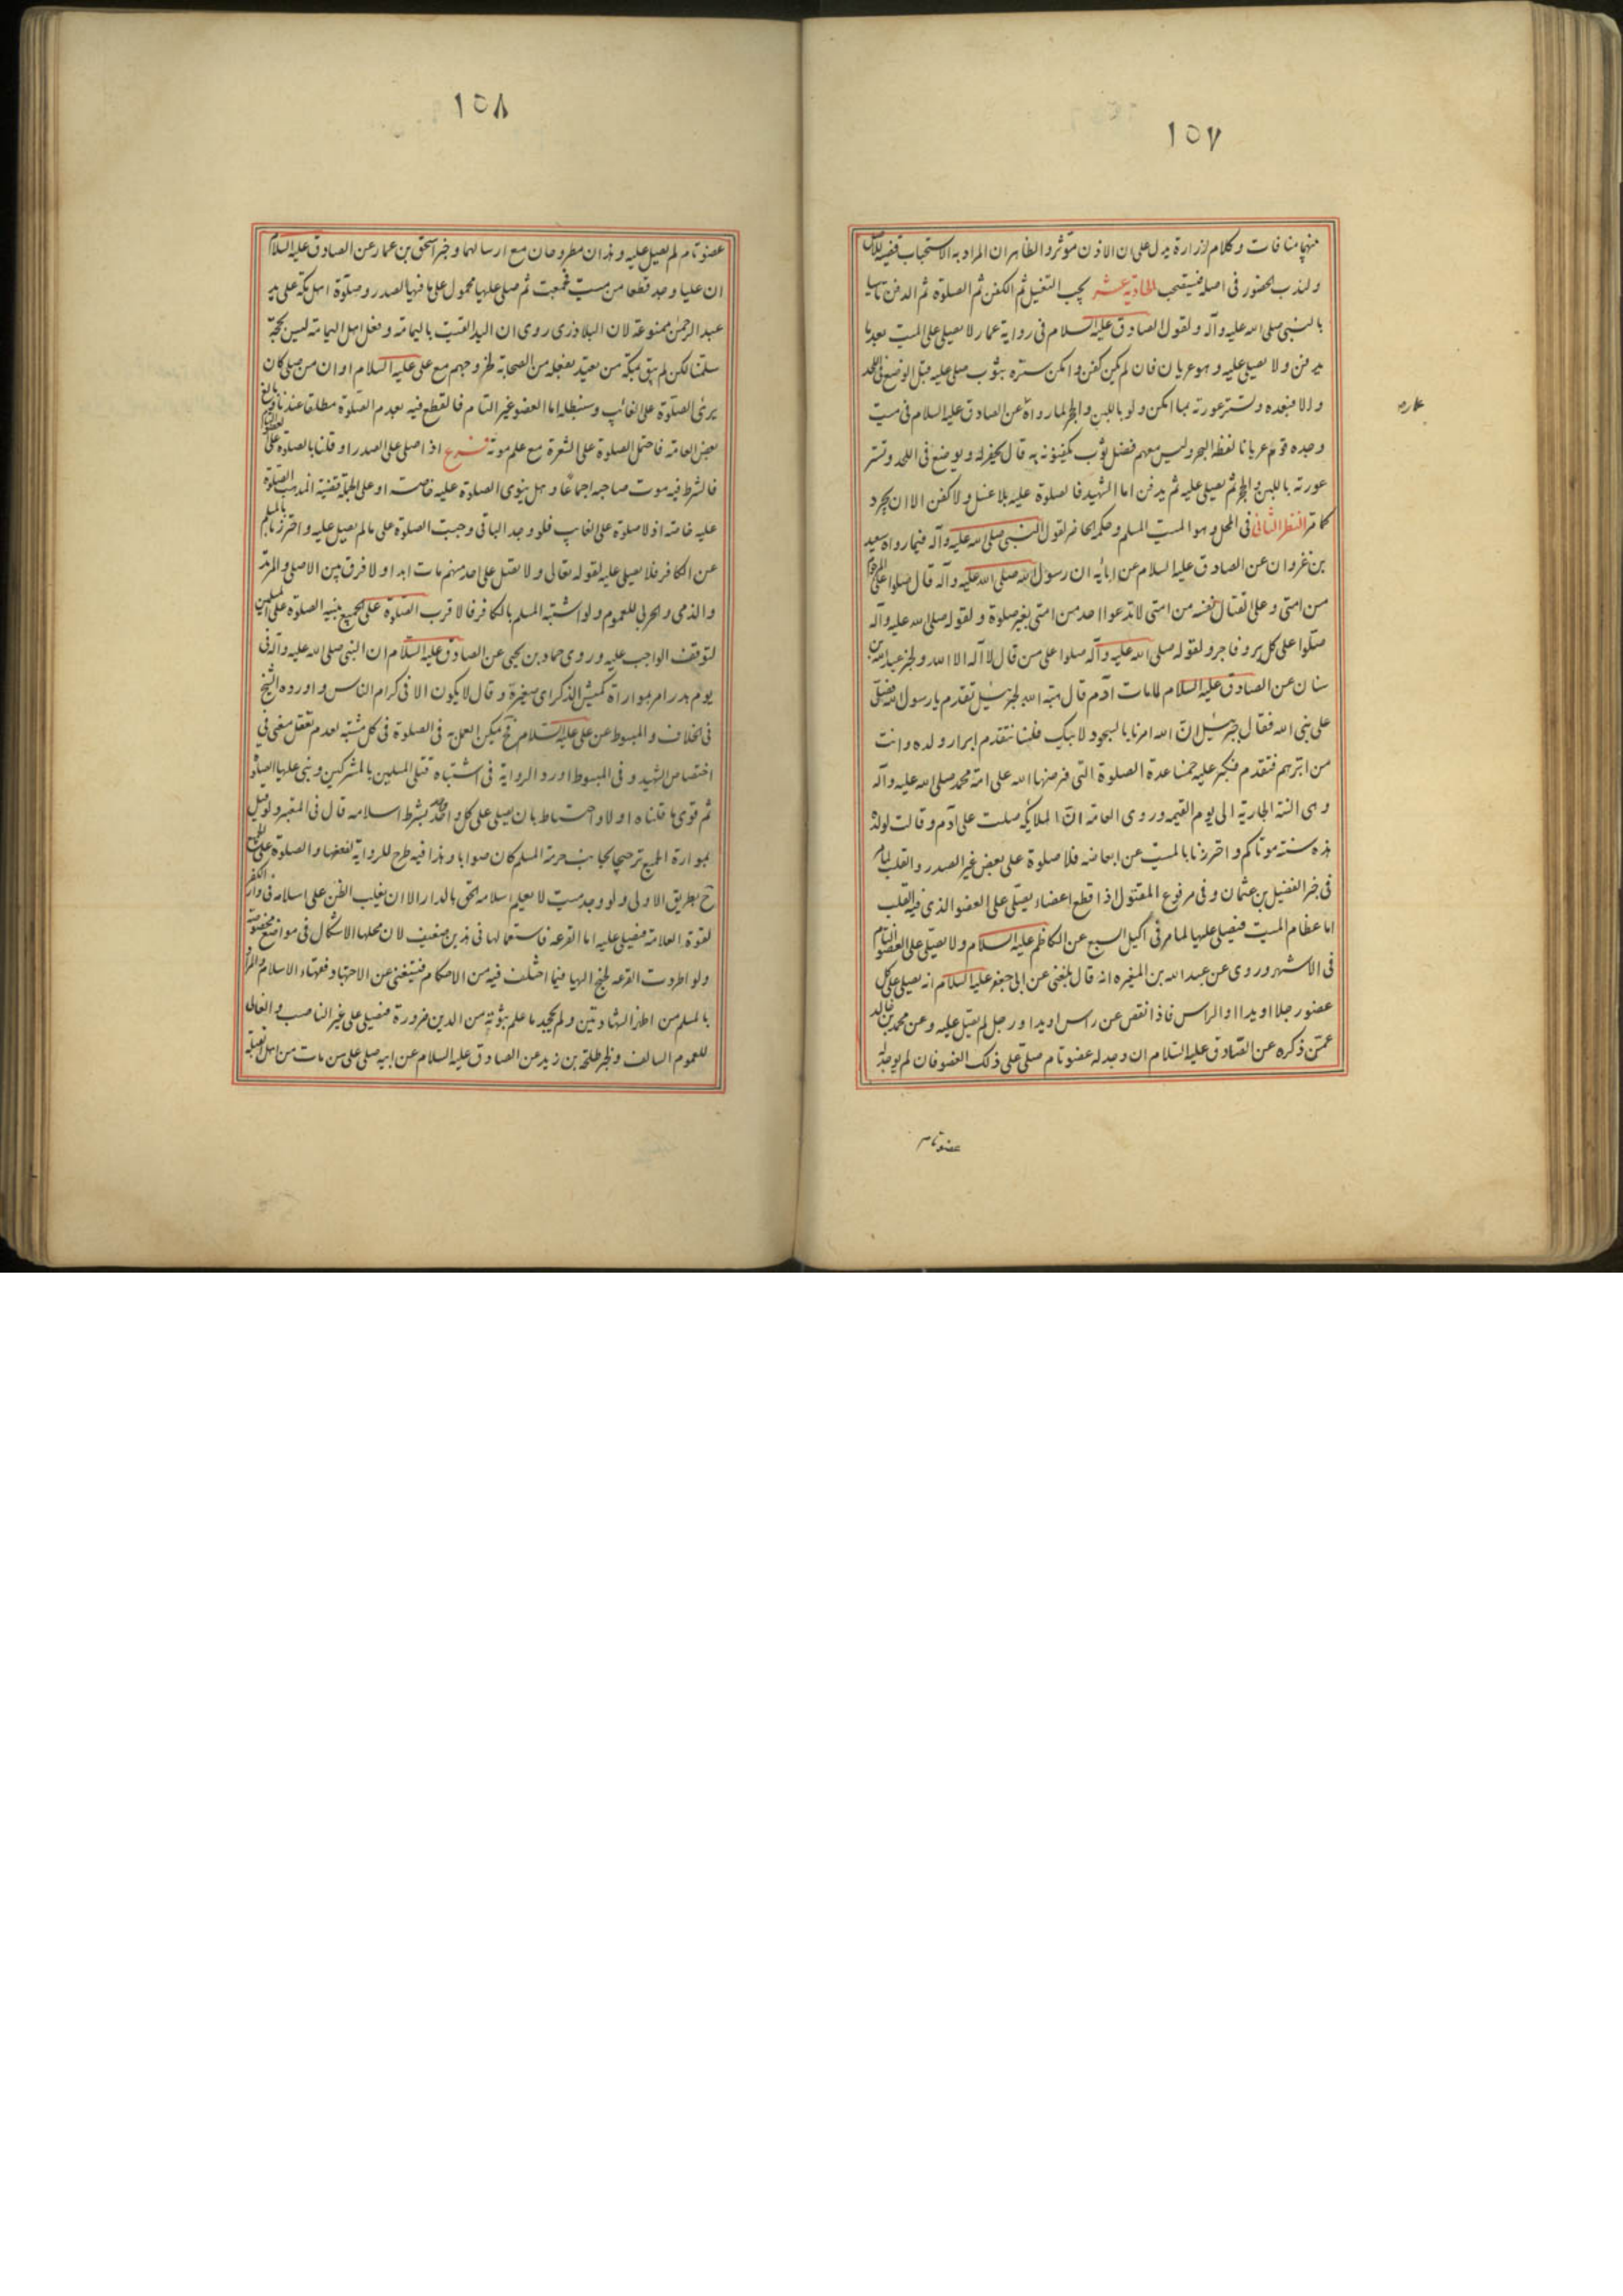 ١٥٧
منهما منافات وكلام لزرارة يدل على ان الاذن مؤثر والظاهر ان المراد به الاستحباب قضية للاصل
ولندب الحضور فى اصله فيستحب الحادية عشر يجب التغسيل ثم الكفن ثم الصلوة ثم الدفن تاسيا
بالنبى صلى الله عليه وآله ولقول الصادق عليه السلام فى رواية عمار لا يصلى على الميت بعد ما
يدفن ولا يصلى عليه وهو عريان فان لم يكن كفن وامكن ستره بثوب صلى عليه قبل الوضع فى اللحد
والا فبعده وتستر عورته بما امكن ولو باللبن والحجر لما رواه عن الصادق عليه السلام فى ميت
وجده قوم عريانا لفظه البحر وليس معهم فضل ثوب يكفنونه به قال يحفر له ويوضع فى اللحد وتستر
عورته باللبن والحجر ثم يصلى عليه ثم يدفن اما الشهيد فالصلوة عليه بلا غسل ولا كفن الا ان يجرد
كما مر النظر الثانى فى المحل وهو الميت المسلم وحكمه الحاضر لقول النبى صلى الله عليه وآله فيما رواه سعيد
بن غزوان عن الصادق عليه السلام عن ابائه ان رسول الله صلى الله عليه وآله قال صلوا على المرجوم
من امتى وعلى القتال نفسه من امتى لا تدعوا احد من امتى بغير صلوة ولقوله صلى الله عليه وآله
صلوا على كل بر وفاجر ولقوله صلى الله عليه وآله صلوا على من قال لا آله الا الله ولخبر عبد الله بن
سنان عن الصادق عليه السلام لما مات آدم قال هبة الله لجبرئيل تقدم يا رسول الله فصل
على نبى الله فقال جبرئيل ان الله امرنا بالسجود لابيك فلسنا نتقدم ابرار ولده وانت
من ابرهم فتقدم فكبر عليه خمسا عدة الصلوة التى فرضها الله على امة محمد صلى الله عليه وآله
وهى السنة الجارية الى يوم القيمه وروى العامة ان الملائكه صلت على آدم وقالت لولده
هذه سنة موتاكم واحترزنا بالميت عن ابعاضه فلا صلوة على بعض غير الصدر والقلب لما مر
فى خبر الفضيل بن عثمان وفى مرفوع المقتول اذا قطع اعضاء يصلى على العضو الذى فيه القلب
اما عظام الميت فيصلى عليها لما مر فى اكيل السبع عن الكاظم عليه السلام ولا يصلى على العضو التام
فى الاشهر وروى عن عبد الله بن المغيره انه قال بلغنى عن ابى جعفر عليه السلام انه يصلى على كل
عضو رجلا او يدا او الراس فاذا نقص عن راس او يد او رجل لم يصل عليه وعن محمد بن خالد
عمن ذكره عن الصادق عليه السلام ان وجد له عضو تام صلى على ذلك العضو فان لم يوجد له
عضو تام
١٥٨
عضو تام لم يصل عليه وهذان مطروحان مع ارسالهما وخبر اسحق بن عمار عن الصادق عليه السلام
ان عليا وجد قطعا من ميت فجمعت ثم صلى عليها محمول على ما فيها الصدر وصلوة اهل مكة على يد
عبد الرحمن ممنوعة لان البلاذرى روى ان اليد القيت باليمامة وفعل اهل اليمامة ليس بحجة
سلمنا لكن لم يبق بمكة من يعتد بفعله من الصحابة لخروجهم مع على عليه السلام او ان من صلى كان
يرى الصلوة على الغائب وسنبطله اما العضو غير التام فالقطع فيه بعدم الصلوة مطلقا عندنا وعند
بعض العامة فاحتمل الصلوة على الشعرة مع علم موته فرع اذا صلى على الصدر او قلنا بالصلوة على العضو التام
فالشرط فيه موت صاحبه اجماعا وهل ينوى الصلوة عليه خاصة او على الجملة قضية المذهب الصلوة
عليه خاصة اذ لا صلوة على الغايب فلو وجد الباقى وجبت الصلوة على ما لم يصل عليه واحترزنا بالمسلم
عن الكافر فلا يصلى عليه لقوله تعالى ولا تصل على احد منهم مات ابدا ولا فرق بين الاصلى والمرتد
والذمى والحربى للعموم ولو اشتبه المسلم بالكافر فالاقرب الصلوة على الجميع بنية الصلوة على المسلمين
لتوقف الواجب عليه وروى حماد بن يحيى عن الصادق عليه السلام ان النبى صلى الله عليه وآله فى
يوم بدر امر بمواراة كميش الذكر اى صغيرة وقال لا يكون الا فى كرام الناس واورده الشيخ
فى الخلاف والمبسوط عن على عليه السلام فح يمكن العمل به فى الصلوة فى كل مشتبه لعدم تعقل معنى فى
اختصاص الشهيد وفى المبسوط اورد الرواية فى اشتباه قتلى المسلمين بالمشركين وبنى عليها الصلوة
ثم قوى ما قلناه اولا واحتاط بان يصلى على كل واحد واحد بشرط اسلامه قال فى المعتبر ولو قيل
بمواراة الجميع ترجيحا لجانب حرمة المسلم كان صوابا وهذا فيه طرح للرواية لضعفها والصلوة على الجميع
ح بطريق الاولى ولو وجد ميت لا يعلم اسلامه الحق بالدار الا ان يغلب الظن على اسلامه فى دار الكفر
لقوة العلامة فيصلى عليه اما القرعة فاستعمالها فى هذين ضعيف لان محلها الاشكال فى مواضع مخصوصة
ولو اطردت القرعه لجنح اليها فيما اختلف فيه من الاحكام فيستغنى عن الاجتهاد فقهاء الاسلام والمراد
بالمسلم من اظهر الشهادتين ولم يجحد ما علم ثبوته من الدين ضرورة فيصلى على غير الناصب والغالى
للعموم السالف ولخبر طلحة بن زيد عن الصادق عليه السلام عن ابيه صلى على من مات من اهل القبلة